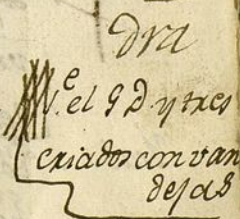 dra
Ve. el G D. y tres
criados con van
dejas